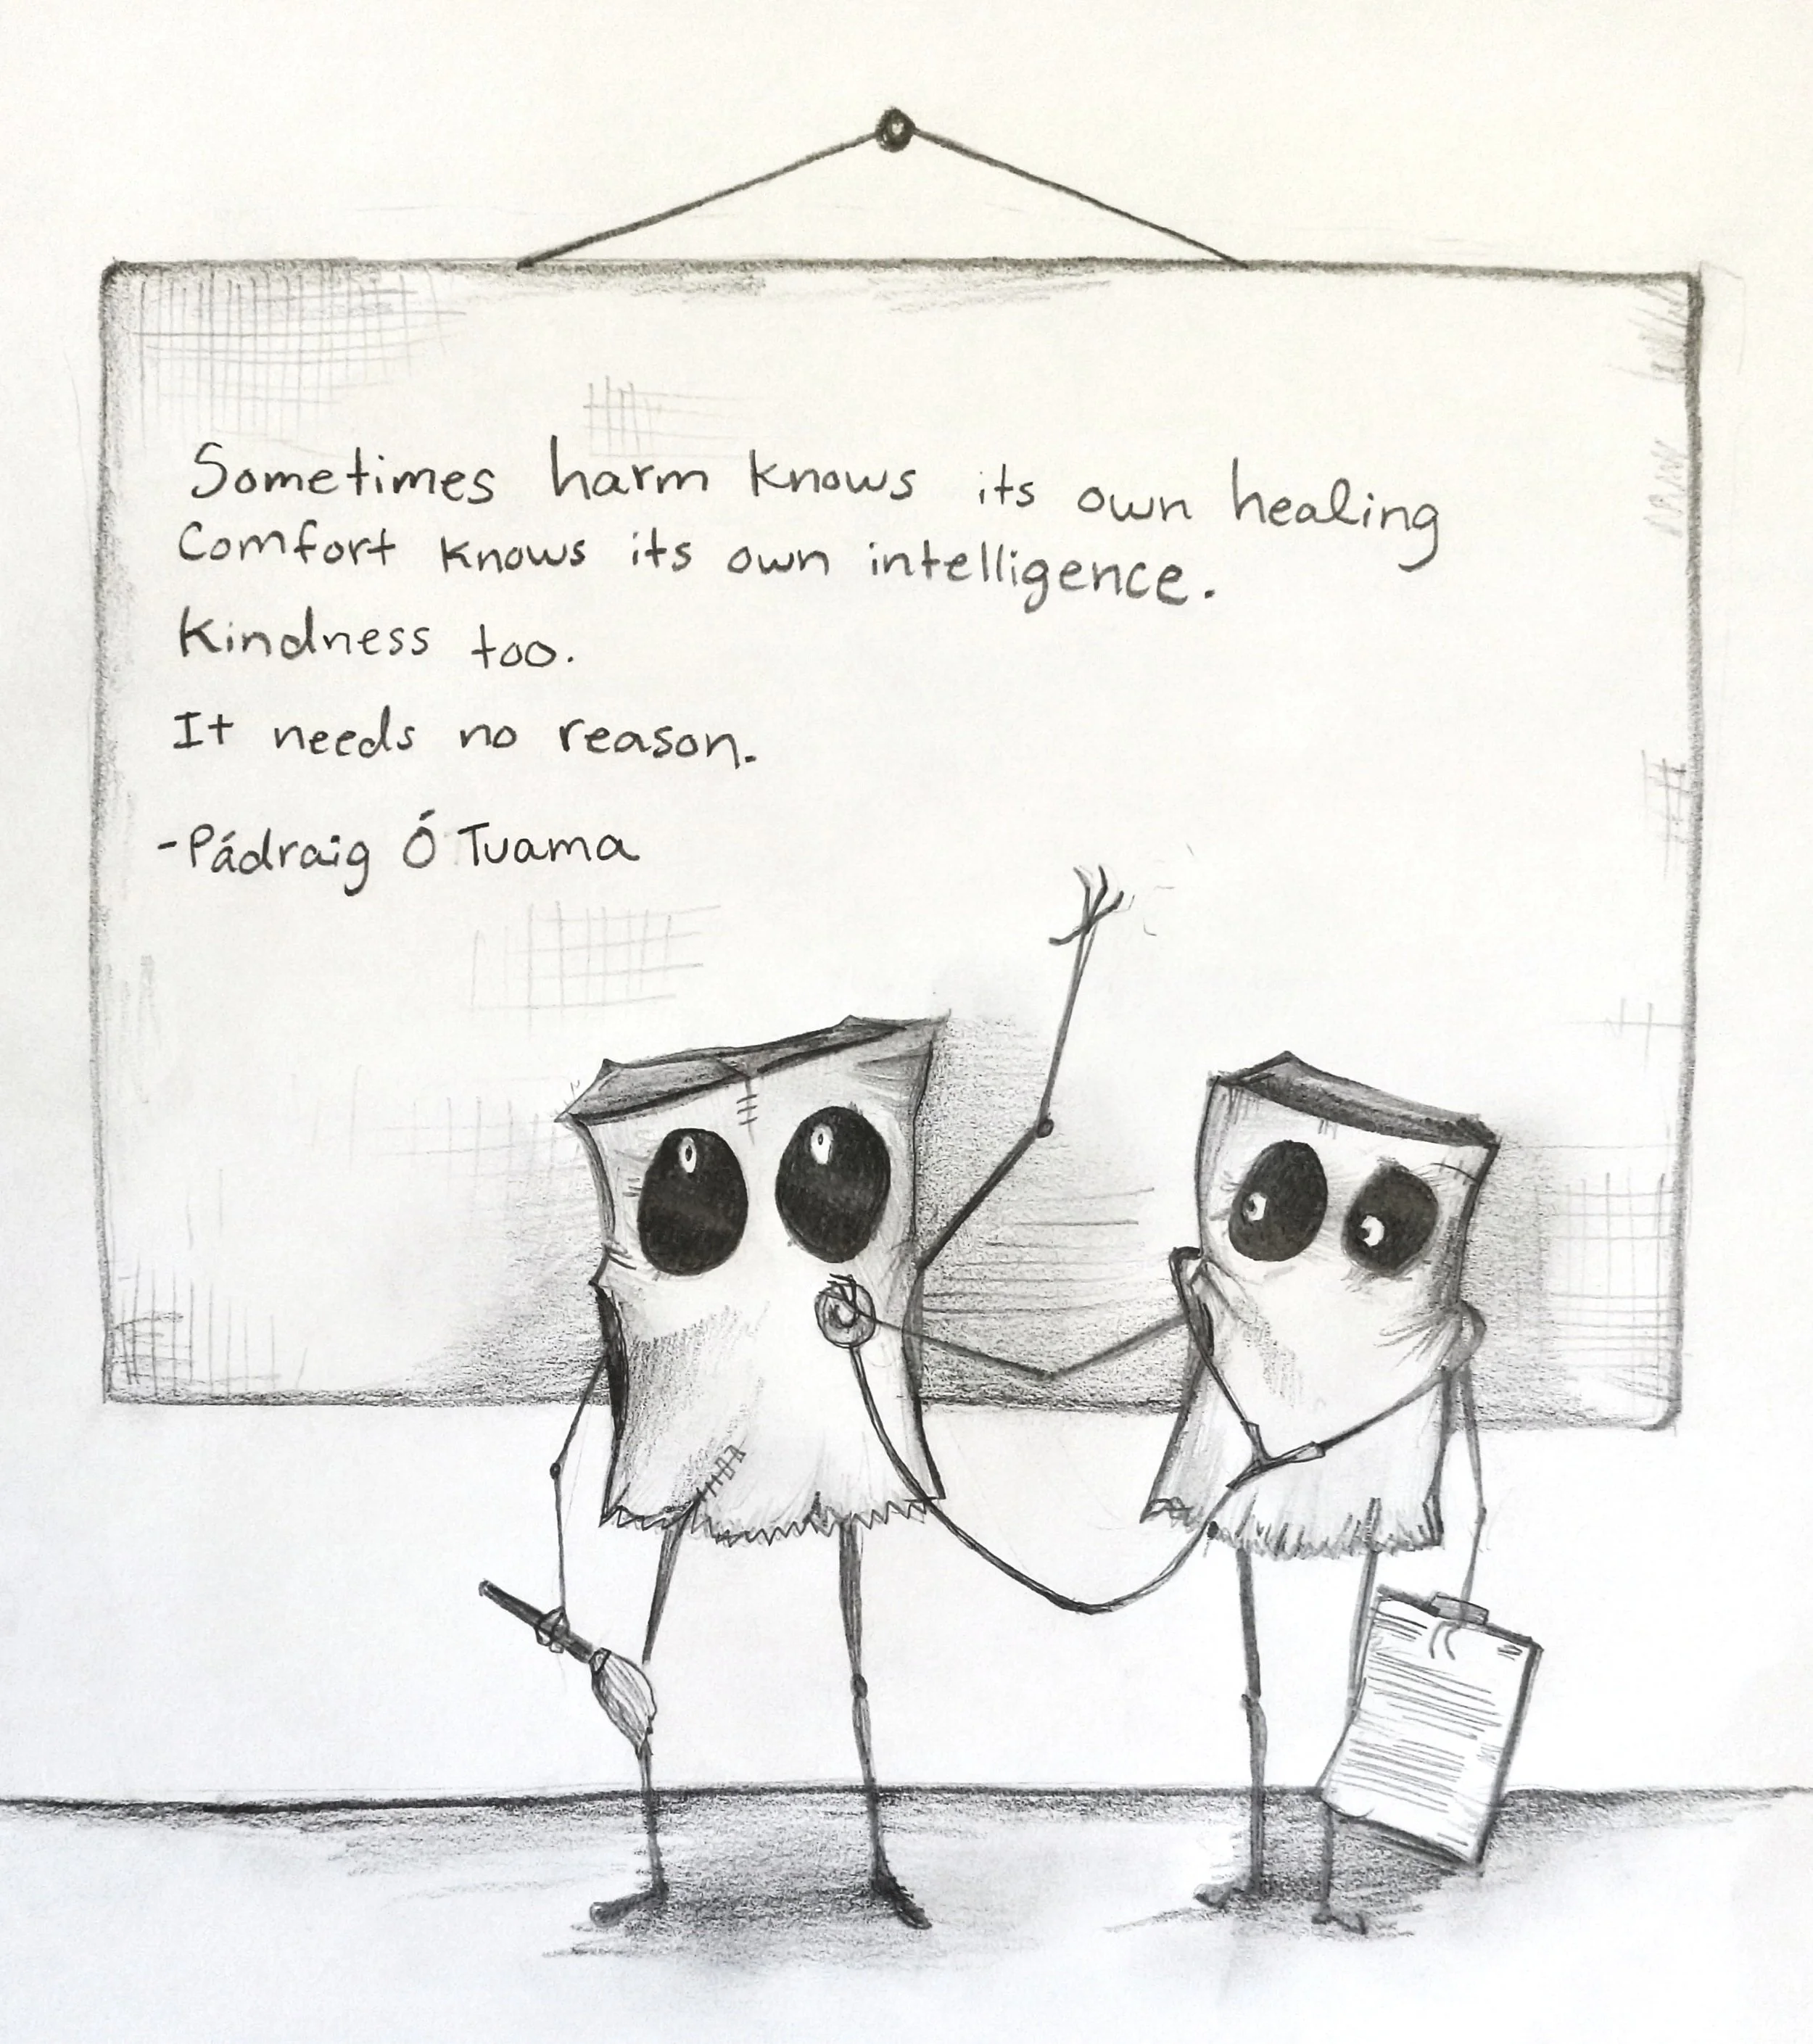 Sometimes harm knows its own healing
Comfort knows its own intelligence.
Kindness too.
It needs no reason.
-Pádraig Ó Tuama